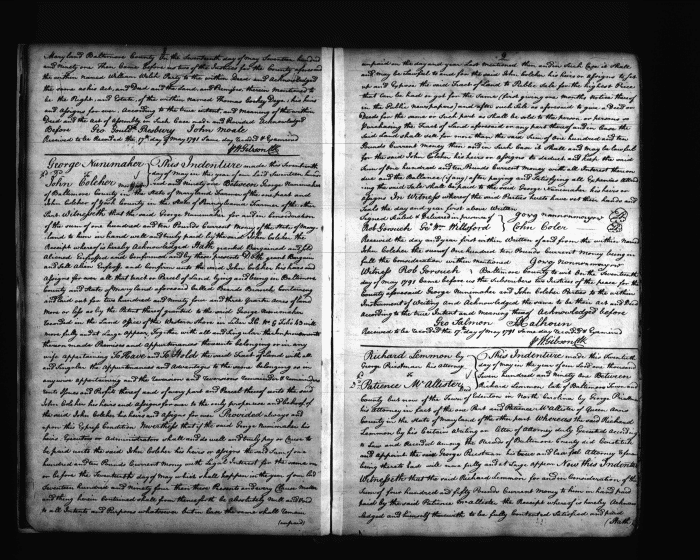 Maryland Baltimore County the Seventeenth day of May Seventeen hundred
and Ninety one Then Came before us two of the Justices for the County aforesaid
the within named William Welch Party to the within Deed and Acknowledged
the same as his act, and Deed and the Land, and Premises therein Mentioned to
be the Right, and Estate, of the within Named Thomas his heirs
and assigns for ever According to the true intent and Meaning of the within
Deed and the Act of Assembly in Such Case made and Provided Acknowledged
Before Geo. Gouldh. Presbury John Moale
Received to be Recorded the 17th day of May 1791 Same day Recorded & Examined
Wm Gibson Clk
George Nunnmaker This Indenture made this Seventeenth
day of May in the year of our Lord Seventeen hundred
John Colcher and Ninety one Between George Nunnmaker
of Baltimore County in the State of Maryland farmer of the one part and
John Colcher of York County in the State of Pennsylvania Farmer of the other
Part Witnesseth that the said George Nunnmaker for and in Consideration
of the sum of one hundred and ten Pounds Current Money of the State of Mary
land to him in hand and truly paid by the said John Colcher the
Receipt whereof is hereby Acknowledged Hath granted Bargained and sold
Aliened Enfeoffed and Confirmed and by these presents Doth grant Bargain
and sell Alien Enfeoff and Confirm unto the said John Colcher his heirs and
Assigns for ever all that tract or Parcel of Land lying and being in Baltimore
County and State of Maryland aforesaid Called Containing
and laid out for two hundred and Ninety four and three Quarter acres of Land
more or less as by the Patent thereof granted to the said George Nunnmaker
Recorded in the Land office of the Western Shore in Liber & folio will
more fully and at large appear Together with all and Singular the improvements
thereon made Premises and appurtenances thereunto belonging or in any
wise appertaining To Have and To Hold the said Tract of Land with all
and Singular the appurtenances and Advantages to the same belonging or in
any wise appertaining and the Reversion and Reversions Remainder & Remainders
Rents Issues and Profits thereof and of every part and Parcel thereof unto the said
John Colcher his heirs and Assigns for ever to the only proper use and behoof of
the said John Colcher his heirs and Assigns for ever Provided always and
upon this Express Condition Nevertheless that if the said George Nunnmaker his
heirs Executors or Administrators shall and do well and truly pay or Cause to
be paid unto the said John Colcher his heirs or assigns the said Sum of one
hundred and ten Pounds Current Money with Legal Interest for the same on
or before the Seventeenth day of May which shall happen in the year of our Lord
Seventeen hundred and Ninety four then these Present and every Clause Matter
and thing herein Contained shall from thenceforth be absolutely Null and Void
to all Intents and Purposes whatsoever but in Case the same shall Remain
(unpaid)
unpaid on the day and year Last mentioned then and in Such Case it Shall
and may be Lawful to and for the said John Colcher his heirs or Assigns to set
up and Expose the said Tract of Land to Public Sale for the highest Price
that can be had or got for the same (first giving six Months notice thereof
in the Public Newspapers) and after such Sale so aforesaid to give a Deed or
Deeds for the same or Such part as Shall be sold to the person or persons so
Purchasing the Tract of Land aforesaid or any part thereof and in Case the
said Land shall sell for more than the said Sum of one hundred and ten
Pounds Current Money then and in such Case it Shall and may be Lawful
for the said John Colcher his heirs or assigns to deduct and keep the said
Sum of one hundred and ten Pounds Current Money with all Interest thereon
due and the Ballance (if any) after paying and Satisfying all Expences attend
ing the said Sale shall be paid to the said George Nunnmaker his heirs or
assigns In Witness whereof the said Parties hereto have set their hands and
Seals the day and year first above Written
Signed Sealed & Delivered in presence of
Received the day and year first within Written of and from the within Named
John Colcher the Sum of one hundred ten Pounds Current Money being in
full the Consideration within mentioned
Witness Baltimore County to wit On the Seventeenth
day of May 1791 Came before us the Subscribers two Justices of the peace for the
County aforesaid George Nunnmaker and John Colcher Parties to the within
Instrument of Writing and Acknowledged the same to be their act and Deed
According to the true Intent and meaning thereof Acknowledged before
Geo Salmon J. Calhoun
Received to be Recorded the 17th day of May 1791 Same day Recorded & Examined
Wm Gibson Clk
Richard Lemmon by This Indenture made this Seventeenth
George Priestman his attorney day of May in the year of our Lord one thousand
to Seven hundred and Ninety one Between
Patience McAllister Richard Lemmon late of Baltimore Town and
County but now of the Town of Edenton in North Carolina by George Priest
his attorney in fact of the one Part and Patience McAllister of Queen Anns
County in the State of Maryland of the other part Whereas the said Richard
Lemmon by his Certain Writing or Letter of Attorney duly Executed Acknow
ledged and Recorded among the Records of Baltimore County did Constitute
and appoint the said George Priestman his true and lawful Attorney as
being thereto had will more fully and at Large appear Now this Indenture
Witnesseth that the said Richard Lemmon for and in Consideration of the
Sum of four hundred and fifty Pounds Current Money to him in hand paid
paid by the said Patience McAllister the Receipt whereof is hereby Acknow
ledged and himself therewith to be fully Contented Satisfied and paid
(Hath)